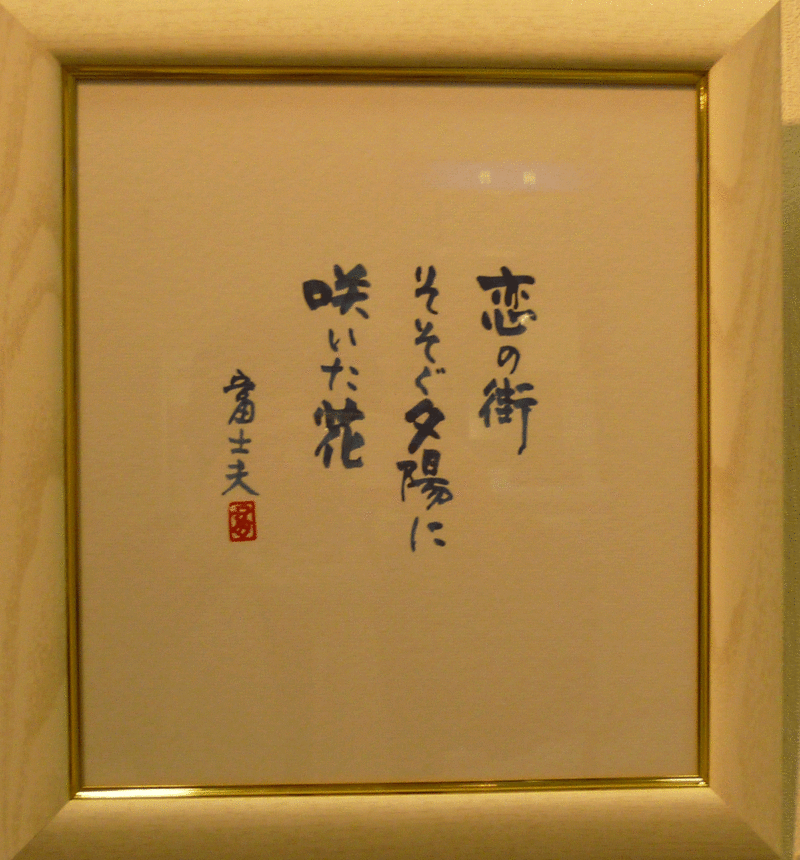 恋の街
そそぐ夕陽に
咲いた花
富士夫